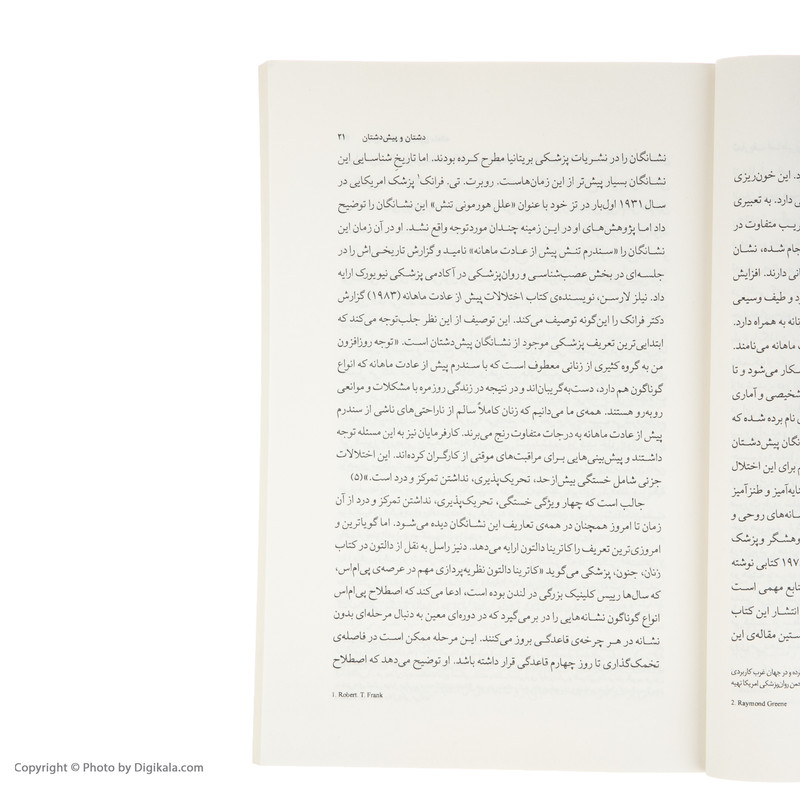 د. این خون‌ریزی
ی دارد. به تعبیری
ریب متفاوت در
جام شده، نشان
انی دارند. افزایش
د و طیف وسیعی
نانه به همراه دارد.
ت ماهانه می‌نامند.
سکار می‌شود و تا
شخیصی و آماری
ی نام برده شده که
نگان پیش‌دشتان
م برای این اختلال
نایه‌آمیز و طنزآمیز
سانه‌های روحی و
وهشگر و پزشک
۱۹۷ کتابی نوشته
نابع مهمی است
انتشار این کتاب
ستین مقاله‌ی این
رده و در جهان غرب کاربردی
جمن روان‌پزشکی امریکا تهیه
2. Raymond Greene
دشتان و پیش‌دشتان ۲۱
نشانگان را در نشریات پزشکی بریتانیا مطرح کرده بودند. اما تاریخ شناسایی این
نشانگان بسیار پیش‌تر از این زمان‌هاست. روبرت. تی. فرانک۱ پزشک امریکایی در
سال ۱۹۳۱ اول‌بار در تز خود با عنوان «علل هورمونی تنش» این نشانگان را توضیح
داد اما پژوهش‌های او در این زمینه چندان موردتوجه واقع نشد. او در آن زمان این
نشانگان را «سندرم تنش پیش از عادت ماهانه» نامید و گزارش تاریخی‌اش را در
جلسه‌ای در بخش عصب‌شناسی و روان‌پزشکی در آکادمی پزشکی نیویورک ارایه
داد. نیلز لارسن، نویسنده‌ی کتاب اختلالات پیش از عادت ماهانه (۱۹۸۳) گزارش
دکتر فرانک را این‌گونه توصیف می‌کند. این توصیف از این نظر جلب‌توجه می‌کند که
ابتدایی‌ترین تعریف پزشکی موجود از نشانگان پیش‌دشتان است. «توجه روزافزون
من به گروه کثیری از زنانی معطوف است که با سندرم پیش از عادت ماهانه که انواع
گوناگون هم دارد، دست‌به‌گریبان‌اند و در نتیجه در زندگی روزمره با مشکلات و موانعی
روبه‌رو هستند. همه‌ی ما می‌دانیم که زنان کاملاً سالم از ناراحتی‌های ناشی از سندرم
پیش از عادت ماهانه به درجات متفاوت رنج می‌برند. کارفرمایان نیز به این مسئله توجه
داشتند و پیش‌بینی‌هایی برای مراقبت‌های موقتی از کارگران کرده‌اند. این اختلالات
جزئی شامل خستگی بیش‌ازحد، تحریک‌پذیری، نداشتن تمرکز و درد است.»(۵)
جالب است که چهار ویژگی خستگی، تحریک‌پذیری، نداشتن تمرکز و درد از آن
زمان تا امروز همچنان در همه‌ی تعاریف این نشانگان دیده می‌شود. اما گویاترین و
امروزی‌ترین تعریف را کاترینا دالتون ارایه می‌دهد. دنیز راسل به نقل از دالتون در کتاب
زنان، جنون، پزشکی می‌گوید «کاترینا دالتون نظریه‌پردازی مهم در عرصه‌ی پی‌ام‌اس،
که سال‌ها رییس کلینیک بزرگی در لندن بوده است، ادعا می‌کند که اصطلاح پی‌ام‌اس
انواع گوناگون نشانه‌هایی را در بر می‌گیرد که در دوره‌ای معین به دنبال مرحله‌ای بدون
نشانه در هر چرخه‌ی قاعدگی بروز می‌کنند. این مرحله ممکن است در فاصله‌ی
تخمک‌گذاری تا روز چهارم قاعدگی قرار داشته باشد. او توضیح می‌دهد که اصطلاح
1. Robert. T. Frank
Copyright © Photo by Digikala.com